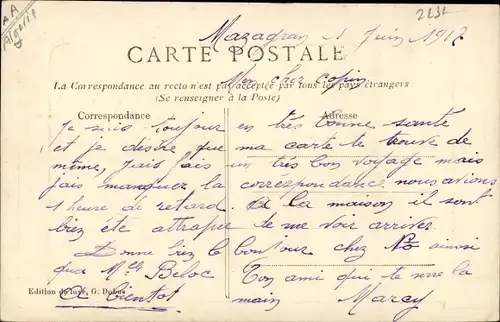 AA
Algérie
2232
Mazagran 1 Juin 1917
CARTE POSTALE
Mon cher copin
La Correspondance au recto n'est pas acceptée par tous les pays étrangers
(Se renseigner à la Poste)
Correspondance
Adresse
Je suis toujour en très bonne santé
et je désire que ma carte te trouve de
même, jais fais un très bon voyage mais
jais manquer la correspondance nous avions
1 heure de retard. A la maison il sont
biez été attrape de me voir arriver
Donne biez le bonjour chez ainsi
qua Mlle Beloc Ton ami qui te serre la
A bientot main Marcy
Edition de luxe, G. Dubus